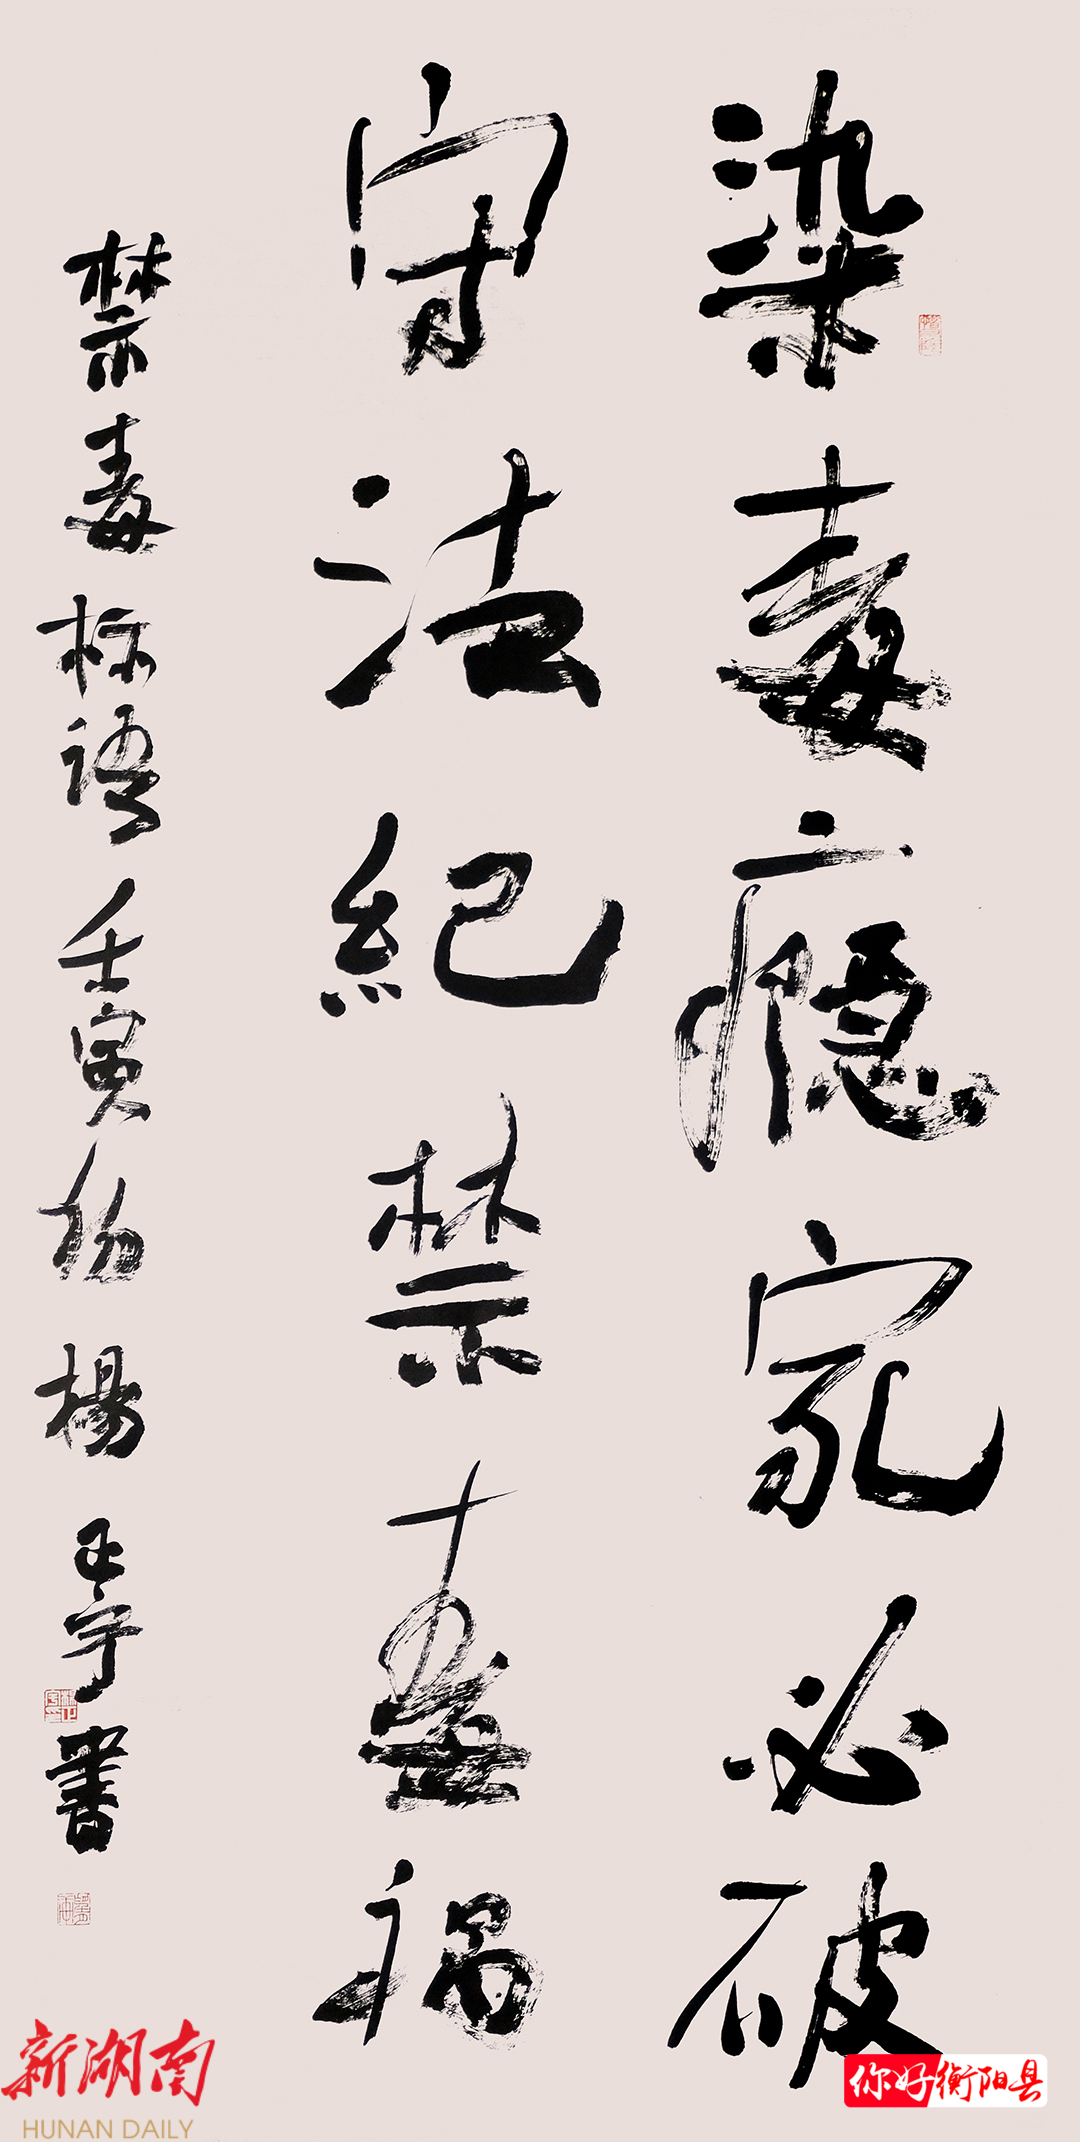 染毒瘾家必破
守法纪禁蛊祸
禁毒标语 壬寅 杨正宇书
新湖南
HUNAN DAILY
你好衡阳县